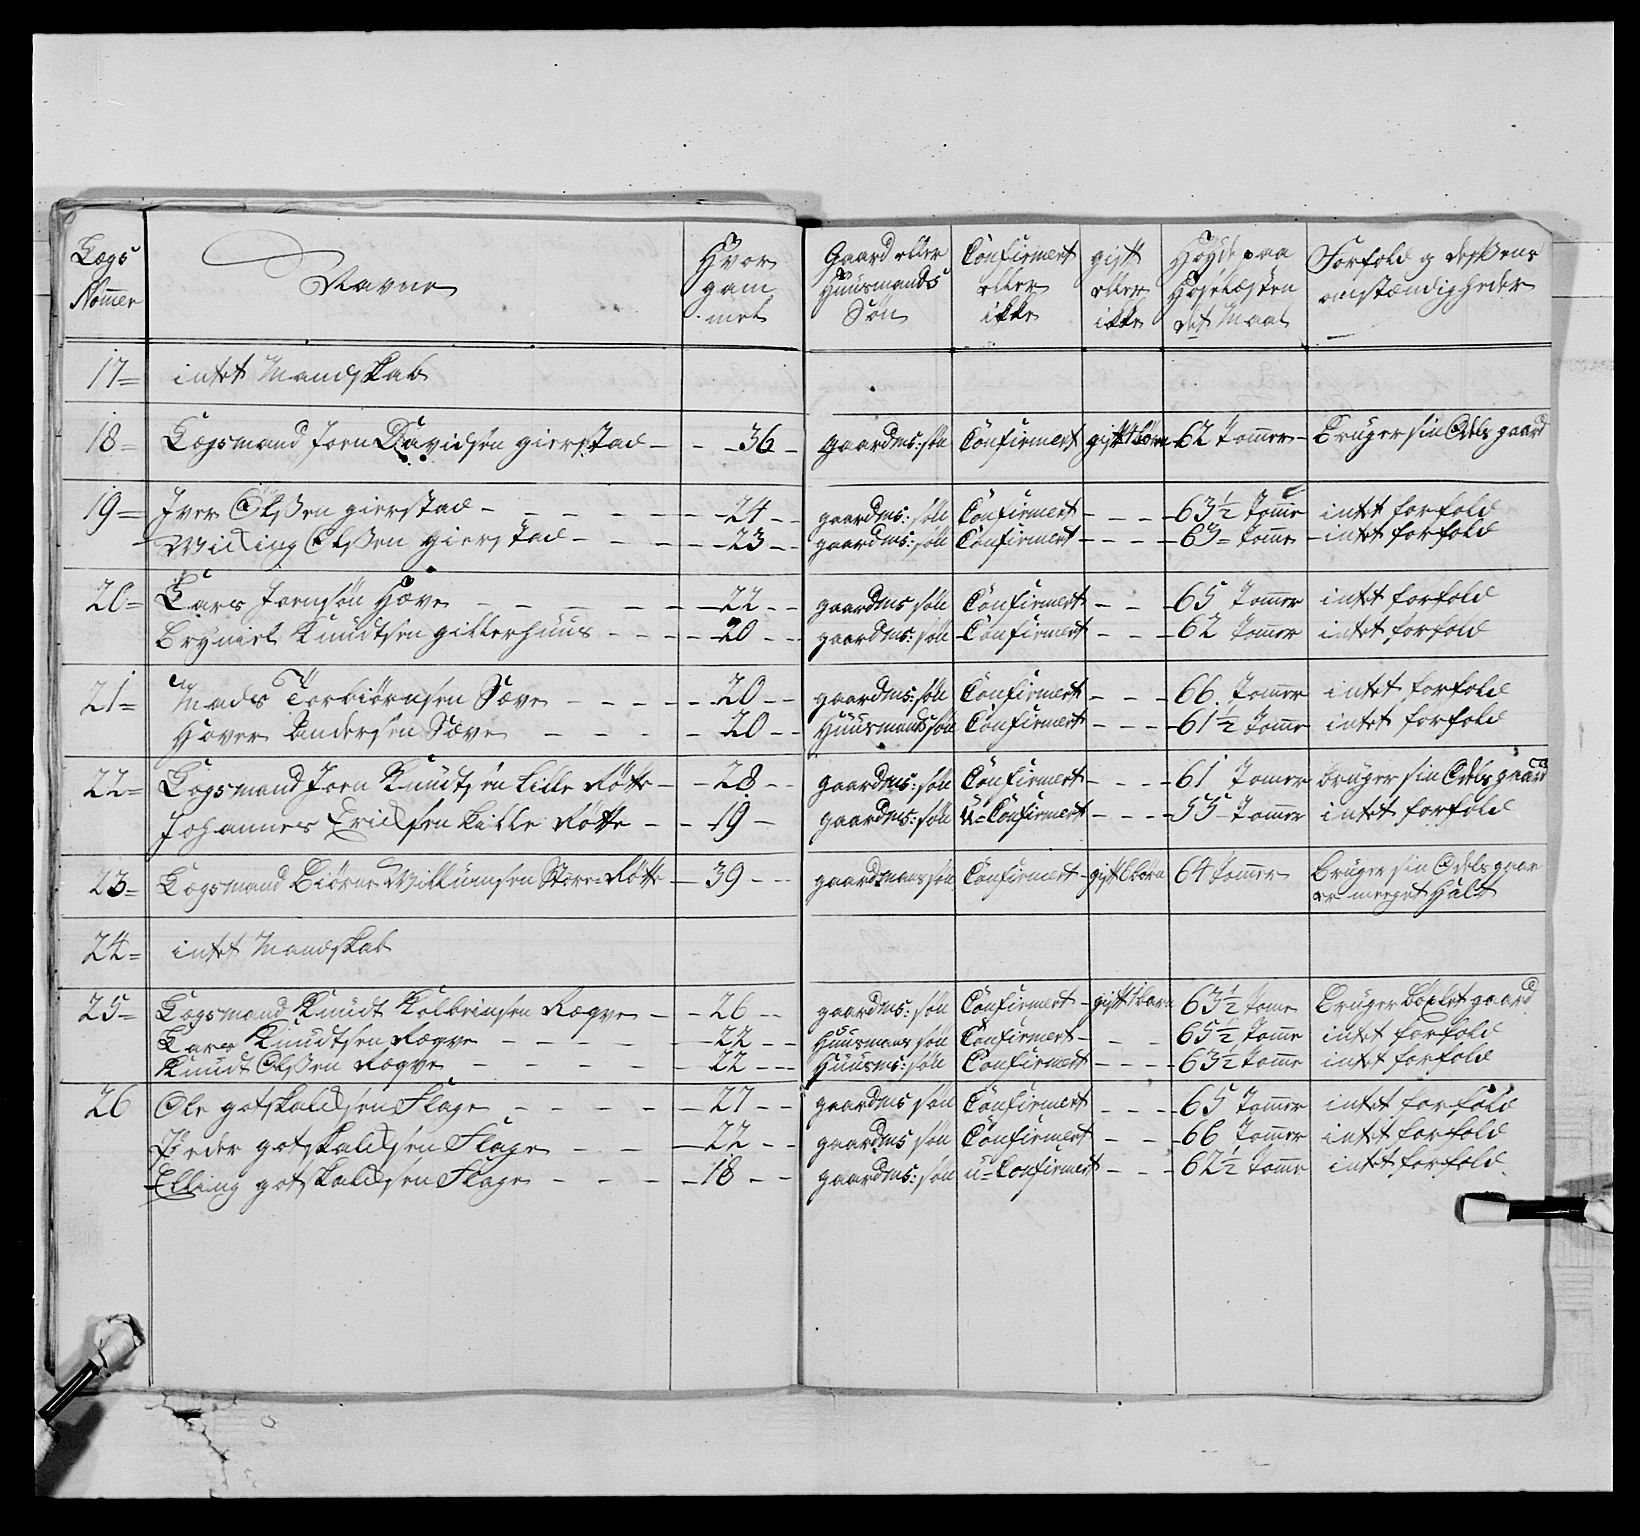 Lægs Nommer | Navne | Hvor gam mel | Gaard eller Huusmands Søn | Confirmert eller ikke | gift eller ikke | Høyde paa Hoselæsten det Maal | Forfold og desßens omstændigheder
17= intet Mandskab
18= Lægsmand Joen Davidsen gierstad - - - 36 - gaardms: søn Confirmert gift 1 børn 62 Tommer - bruger sin Odels gaard
19= Iver Olsßen gierstad - - - 24 - - gaardms: søn Confirmert - - - 63½ Tomme intet forfold
Willing Olsßen gierstad - - - 23 - - gaardms: søn Confirmert - - - 63 - Tomme - intet forfold
20= Lars Joensøn Hæve - - - 22 - - gaardms søn Confirmert - - - 65 Tommer intet forfold
Bryniel Knudtsen gillerhuus - - - 20 - - gaardms: søn Confirmert - - - 62 Tommer intet forfold
21= Mads Torbiørnsen Sæve - - - 20 - - gaardms: søn Confirmert - - - 66 Tommer intet forfold
Haver Andersen Sæve - - - 20 - - Huusmands søn Confirmert - - - 61½ Tomme intet forfold
22= Lægsmand Joen Knudtsøn Lille Røtte - - 28 - - gaardms: søn Confirmert - - - 61 Tommer bruger sin Odels gaard
Johannes Erichsen Lille Røtte - - 19 - gaardms: søn U=Confirmert - - - 55 Tommer intet forfold
23= Lægsmand Biørne Willumsen Store=Røtte - 39 - - gaardmans søn Confirmert - gift børn 64 Tommer bruger sin Odels gaar
er meeget Halt
24= intet Mandskab
25= Lægsmand Knudt Kolbeinsen Ræqve - - 26 - - gaardms: søn Confirmert - gift 1 barn 63½ Tome bruger böxlet gaard
Lars Knudtsen Ræqve - - - 22 - - Huusmans søn Confirmert - - - 65½ Tomme intet forfold
Knudt Olsßen Ræqve - - - 22 - - Huusms: søn Confirmert - - - 63½ Tomme intet forfold
26 Ole gotskalchsen Flage - - - 27 - - gaardms søn Confirmert - - - 65 Tommer intet forfold
Peder gotskalchsen Flage - - - 22 - - gaardms søn Confirmert - - - 66 Tommer intet forfold
Elling gotskalchsen Flage - - - 18 - - gaardms: søn u=Confirmert - - - 62½ Tomme intet forfold